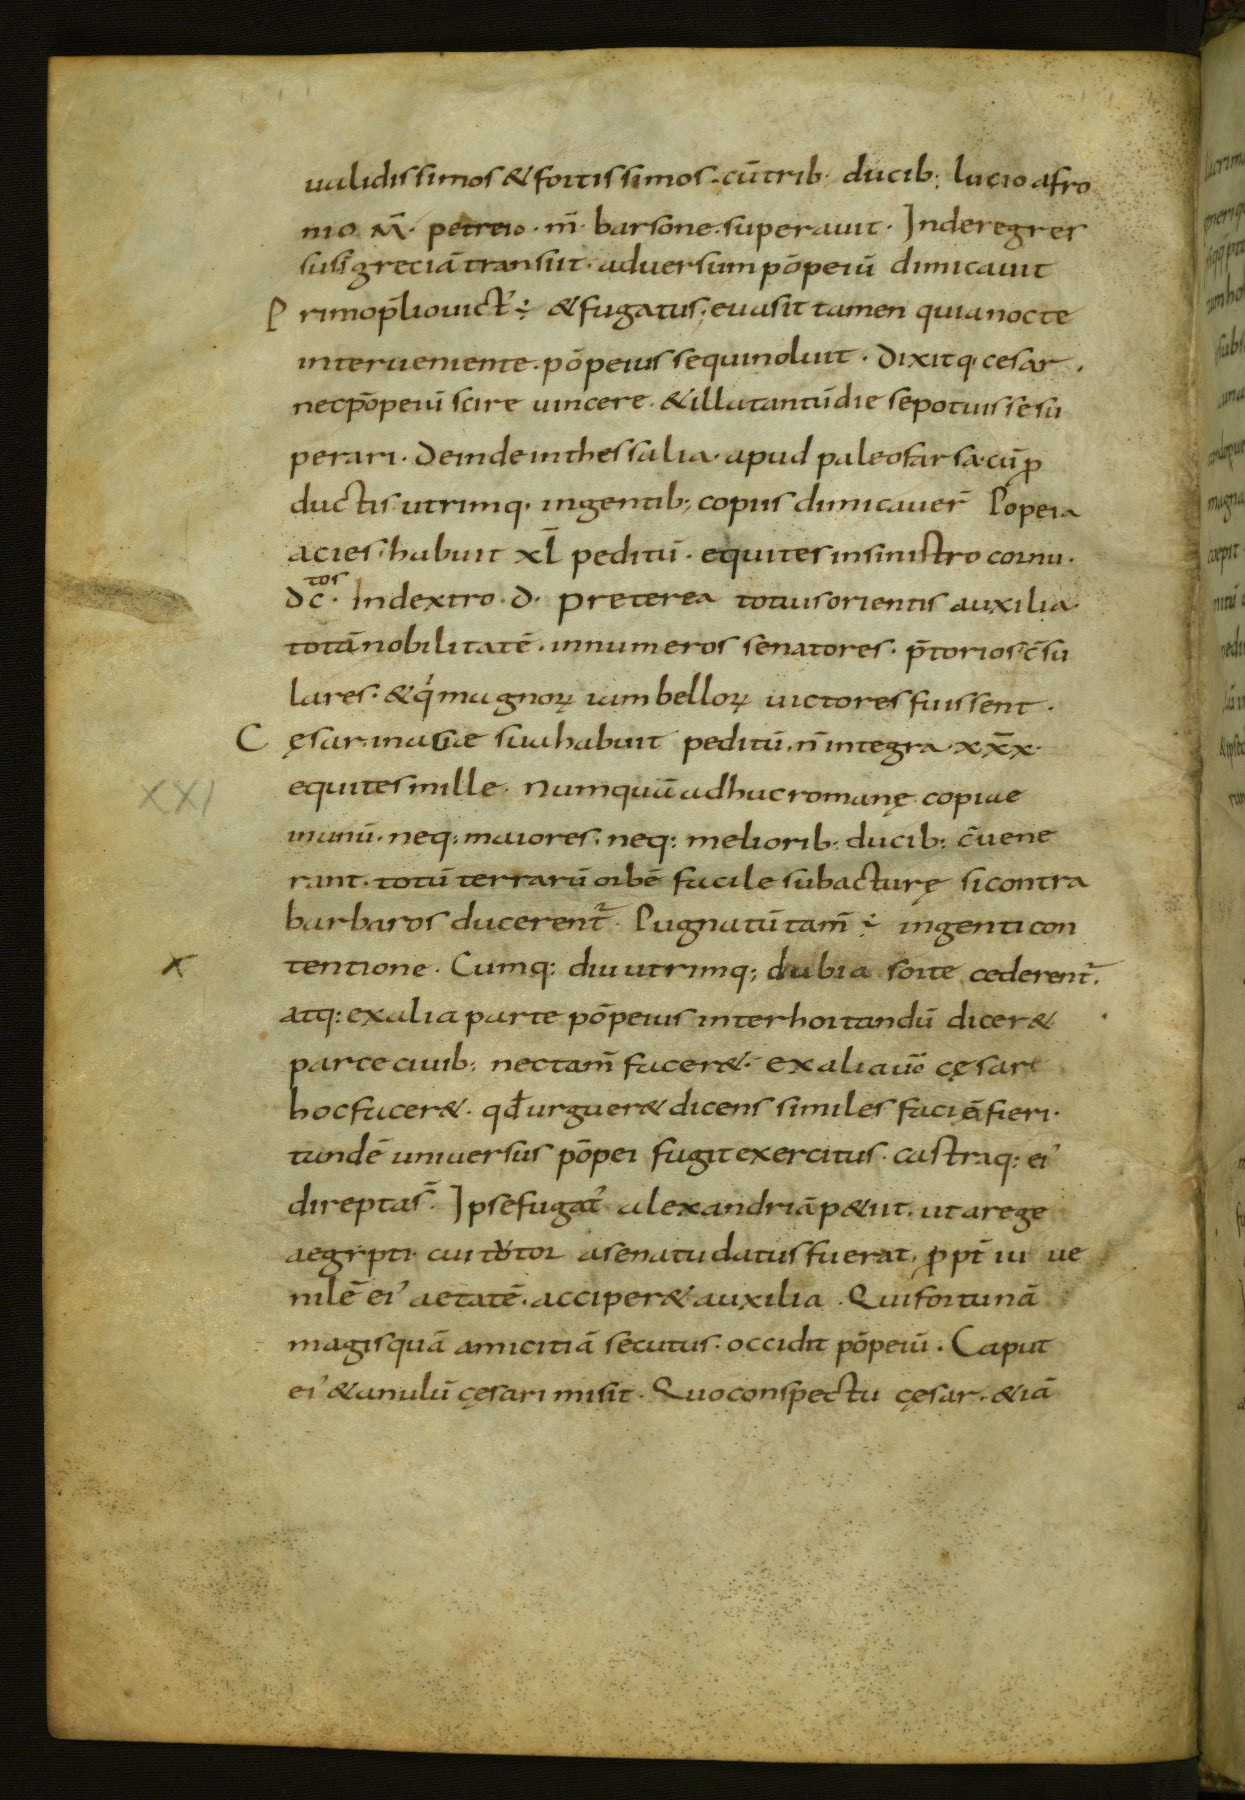 ualidissimos & fortissimos. cu̅ trib· ducib; lucio afro
nio. M̅· petreio · m̅· barsone. superauit · Inde regres
sus i̅ grecia̅ transiit · aduersum po̅peiu̅ dimicauit
Primo p̅lio uict' ÷ & fugatus; euasit tamen quia nocte
interueniente. po̅peius sequi noluit · dixitq; cesar.
nec po̅peiu̅ scire uincere. & illa tantu̅ die se potuisse su
perari · Deinde in thessalia · apud paleofarsa̅· cu̅ ꝓ
ductis utrimq; ingentib; copiis dimicauer̅ Popeia
acies · habuit xl̅ peditu̅ · equites in sinistro cornu ·
dc̅tos · In dextro · d · preterea totius orientis auxilia·
tota̅ nobilitate̅ · innumeros senatores · p̅torios c̅su
lares · & qi magnoꝝ iam belloꝝ uictores fuissent ·
Cęsar in aciae sua habuit peditu̅ · n̅ integra · xx̅x·
equites mille · Numqua̅ adhuc romanę copiae
in unu̅ · neq; maiores; neq; meliorib; ducib; c̅uene
rant · totu̅ terraru̅ orbe̅ facile subacturę si contra
barbaros ducerent᷑ · Pugnatu̅ tam̅ ÷ ingenti con
XXI
tentione · Cumq; diu utrimq; dubia sorte cederent᷑.
x
atq; ex alia parte po̅peius inter hortandu̅ dicer&
parce ciuib; nec tam̅ facer& · ex alia u̅o cęsar
hoc facer& · qd̅ urguer& dicens similes facie̅ fieri·
tunde̅ uniuersus po̅pei fugit exercitus · castraq; ei'
direptas̅ · Ipse fugat' alexandria̅ p&iit · ut a rege
aegypti · cui tutor a senatu datus fuerat · ꝓpt̅ iuue
nile̅ ei' aetate̅ · acciper& auxilia · Qui fortuna̅
magis qua̅ amicitia̅ secutus · occidit po̅peiu̅ · Caput
ei' & anulu̅ cęsari misit · Quo conspectu cęsar · & ia̅